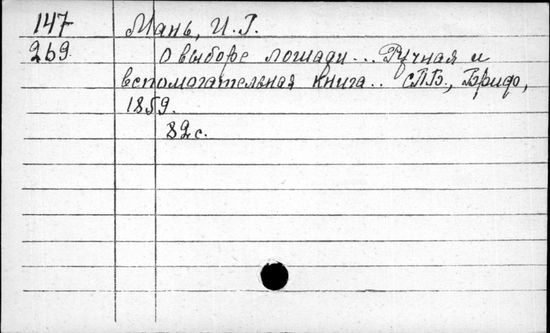 147 Мань, И. Г.
269 О выборе лошади... Ручная и
вспомогательная книга.. СПБ., Бридо,
1859.
82 с.